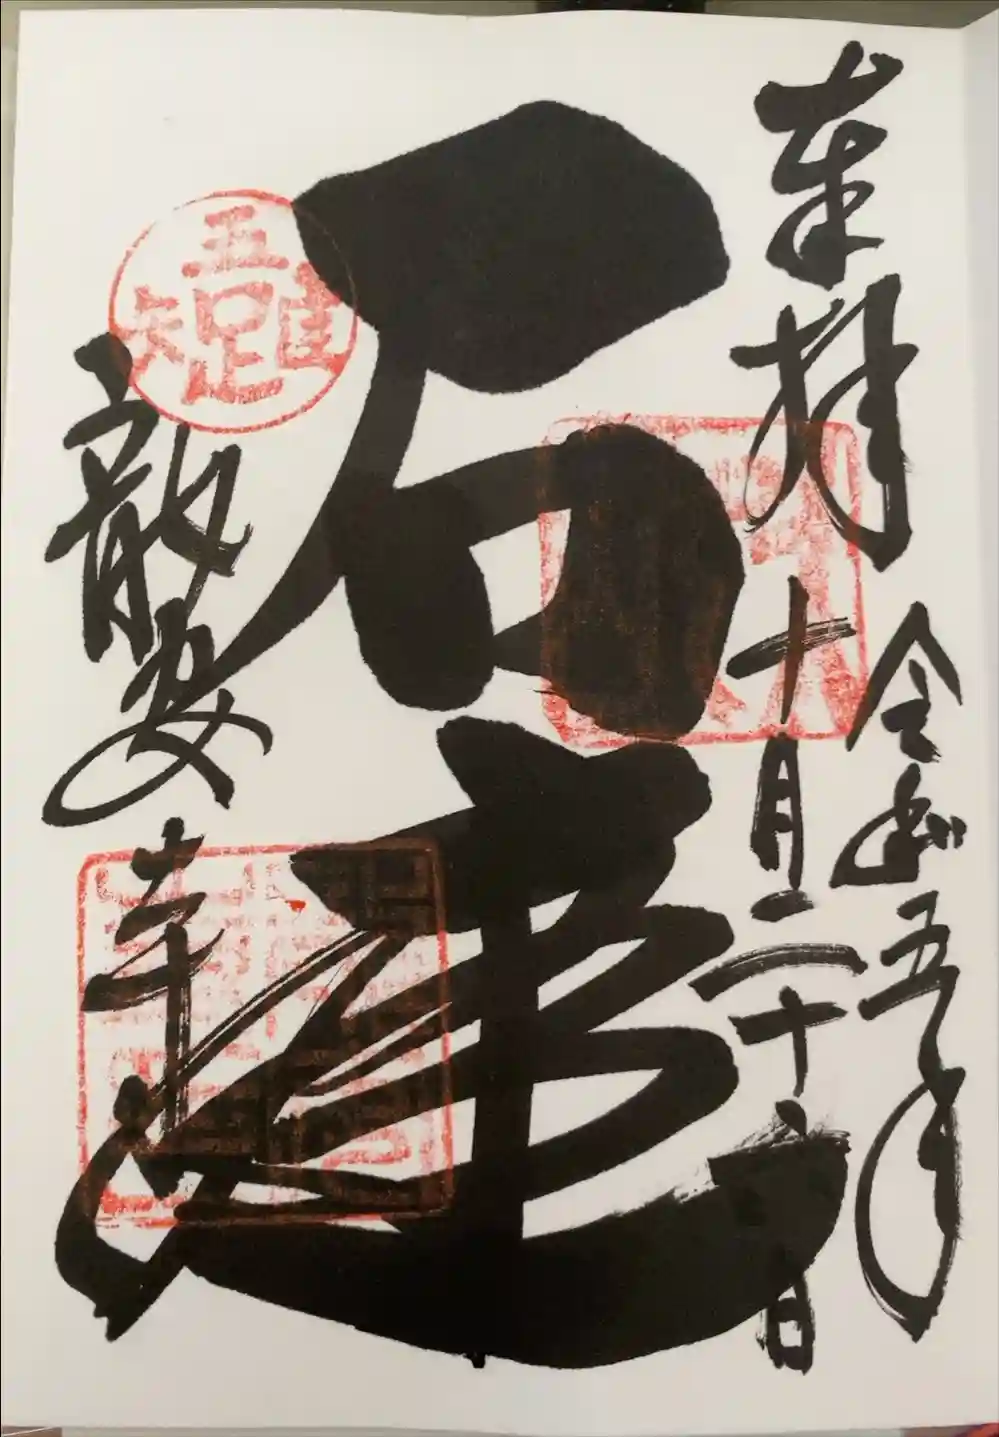 奉拝
令和五年
十月二十六日
石庭
吾唯足知
龍安寺